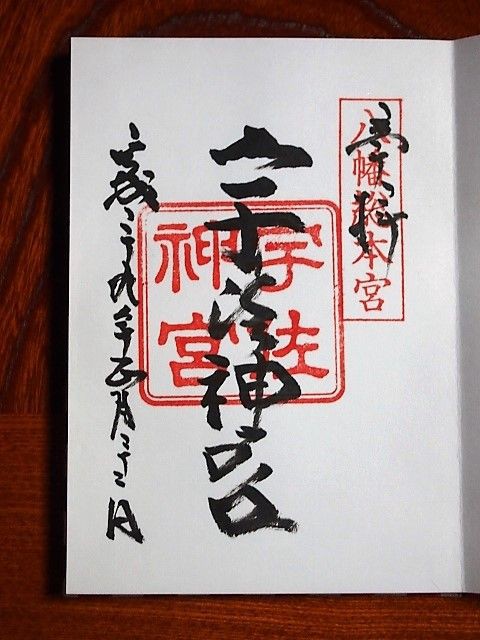 奉拝
八幡総本宮
宇佐神宮
宇佐神宮
平成二十九年五月二十二日